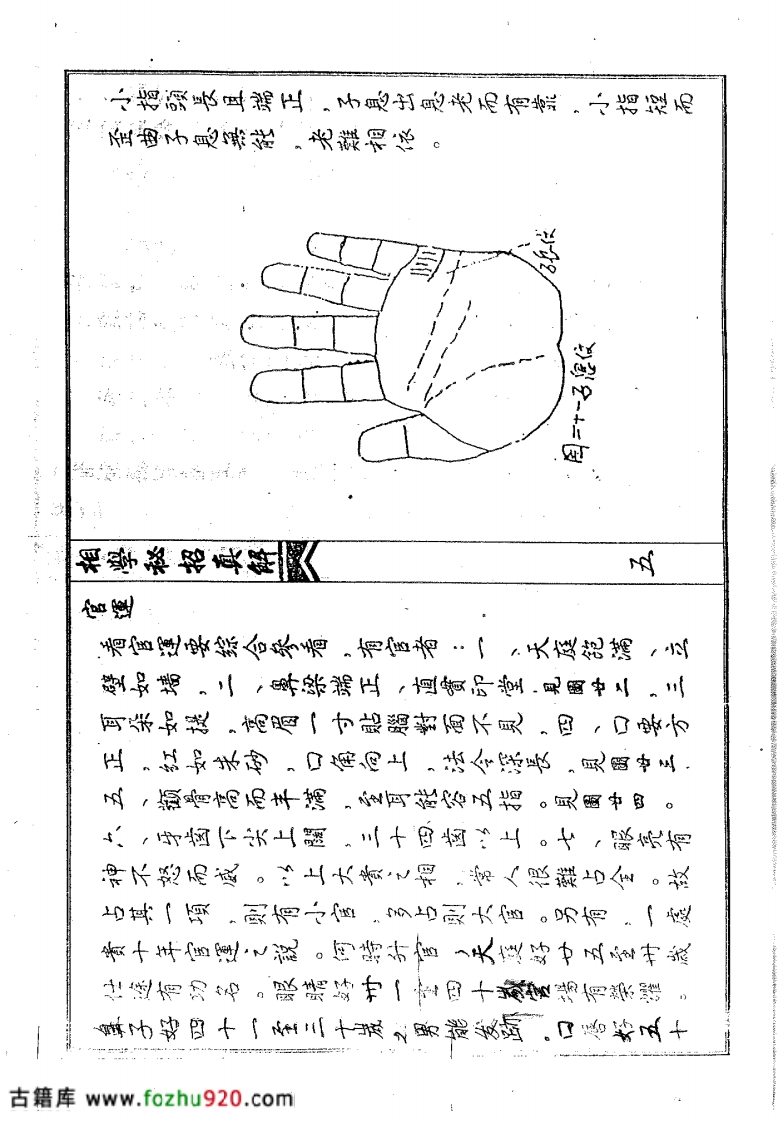 小指頭長且端正，子息出息老而有靠，小指短而
歪曲子息無能，老難相依。
子息纹
图二十一子息纹
相学秘招真解
五
官運
看官運要綜合參看，有官者：一、天庭飽滿、立
壁如墙，二、鼻梁端正、直貫印堂，見圖廿二，三
耳朵如提，高眉一寸貼腦對面不見，四、口要方
正，紅如朱砂，口角向上，法令深長，見圖廿三．
五、顴骨高而丰滿，至耳能容五指。見圖廿四。
六、牙齒下尖上闊，三十四齒以上。七、眼亮有
神不怒而威。以上大貴之相，常人很難占全。故
占其一項，則有小官，多占則大官。另有，一處
貴十年官運之説。何時升官，天庭好廿五至卅歲
仕途有功名。眼睛好卅一至四十歲官場有榮耀。
鼻子好四十一至三十歲之男能發跡。口唇好五十
古籍库 www.fozhu920.com